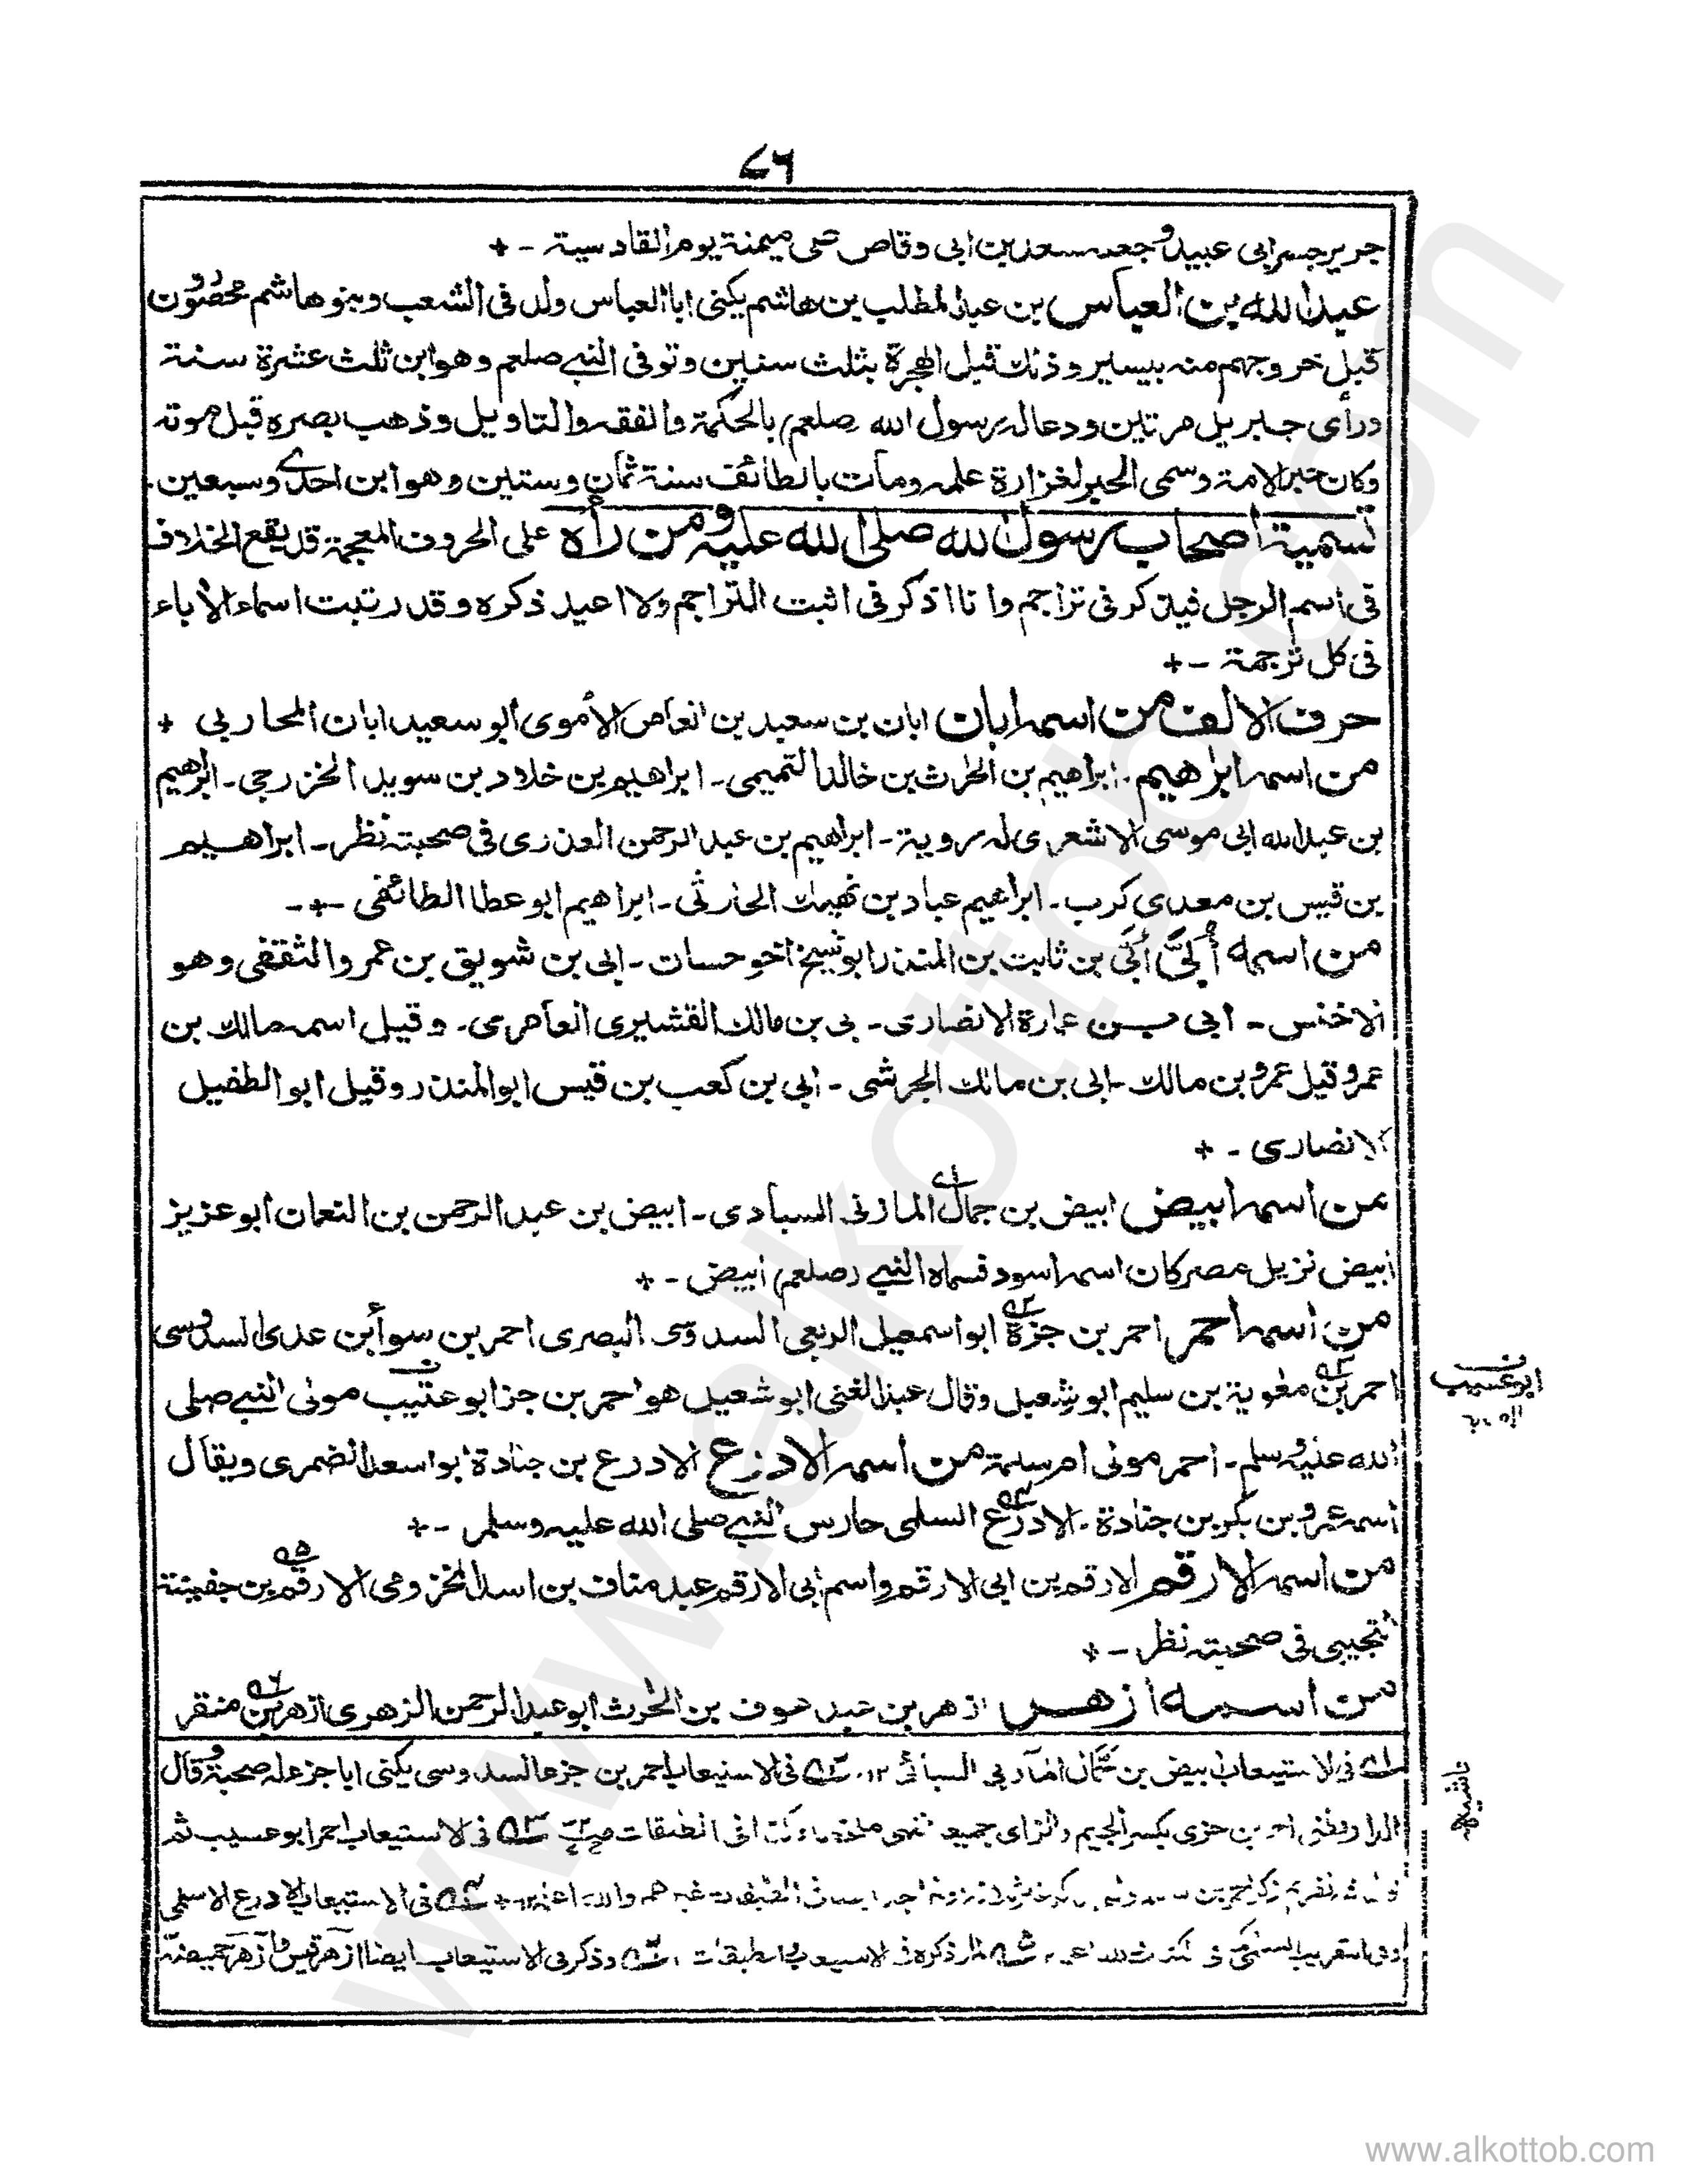 ٧٦
جرير جسر ابى عبيد وجعله سعد بن ابى وقاص على ميمنة يوم القادسية - +
عبد الله بن العباس بن عبد المطلب بن هاشم يكنى ابا العباس ولد فى الشعب وبنو هاشم محصورون
قبل خروجهم منه بيسير وذلك قبل الهجرة بثلث سنين وتوفى النبى صلعم وهو ابن ثلث عشرة سنة
ورأى جبريل مرتين ودعا له رسول الله صلعم بالحكمة والفقه والتاويل وذهب بصره قبل موته
وكان حبر الامة وسمى الحبر لغزارة علمه ومات بالطائف سنة ثمان وستين وهو ابن احدى وسبعين.
تسمية اصحاب رسول الله صلى الله عليه ومن رأه على الحروف المعجمة قد يقع الخلاف
فى اسم الرجل فيذكر فى تراجم وانا اذكر فى اثبت التراجم ولا اعيد ذكره وقد رتبت اسماء الأباء
فى كل ترجمة - +
حرف الالف من اسمه ابان ابان بن سعيد بن العاص الأموى ابو سعيد ابان المحاربى +
من اسمه ابراهيم. ابراهيم بن الحرث بن خالد التميمى - ابراهيم بن خلاد بن سويد الخزرجى - ابراهيم
بن عبد الله ابى موسى الاشعرى له روية - ابراهيم بن عبد الرحمن العذرى فى صحبته نظر - ابراهيم
بن قيس بن معدى كرب - ابراهيم عباد بن نهيك الحارثى - ابراهيم ابو عطا الطائفى -+-
من اسمه أبىّ أبى بن ثابت بن المنذر ابو شيخ اخو حسان - ابى بن شويق بن عمرو الثقفى وهو
الاخنس - ابى بن عمارة الانصارى - بى بن مالك القشيرى العامرى - وقيل اسمه مالك بن
عمرو قيل عمرو بن مالك - ابى بن مالك الجرشى - ابى بن كعب بن قيس ابو المنذر وقيل ابو الطفيل
الانصارى - +
من اسمه ابيض ابيض بن جمال المازنى السبادى - ابيض بن عبد الرحمن بن النعمان ابو عزيز
ابيض نزيل مصر كان اسمه اسود فسماه النبى (صلعم) ابيض - +
من اسمه احمر احمر بن جزة ابو اسمعيل الربعى السدوسى البصرى احمر بن سوأ بن عدى السدوسى
احمر بن معوية بن سليم ابو شعيل وقال عبد الغنى ابو شعيل هو احمر بن جز ابو عتيب مولى النبى صلى
الله عليه وسلم - احمر مولى ام سلمة من اسمه الادرع الادرع بن جنادة ابو اسعد الضمرى ويقال
اسمه عمرو بن بكر بن جنادة - الادرع السلمى حارس النبى صلى الله عليه وسلم - +
من اسمه الارقم الارقم بن ابى الارقم واسم ابى الارقم عبد مناف بن اسد المخزومى الارقم بن جفينة
التجيبى فى صحبته نظر - +
من اسمه ازهر ازهر بن عبد عوف بن الحرث ابو عبد الرحمن الزهرى ازهر بن منقر
فى الاستيعاب ابيض بن حمّال السبائى ١٢. فى الاستيعاب احمر بن جزء السدوسى يكنى ابا جزء له صحبة وقال
بن جزى بكسر الجيم والزاى جميعا فى الطبقات فى الاستيعاب احمر ابو عسيب
فى الاستيعاب الادرع الاسلمى
وذكر فى الاستيعاب ايضا ازهر بن قيس وازهر بن حميضة
ابو عسيب
حاشيه
www.alkottob.com
www.alkottob.com